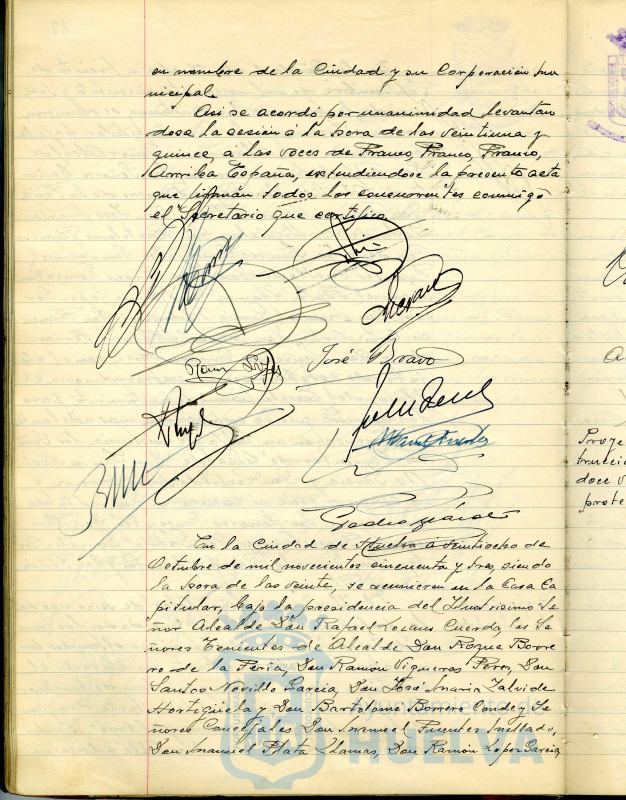 en nombre de la Ciudad y su Corporación mu
nicipal.
Asi se acordó por unanimidad levantan
dose la sesión a la hora de las veintiuna y
quince, a las voces de Franco, Franco, Franco,
Arriba España, extendiendose la presente acta
que firman todos los concurrentes conmigo
el Secretario que certifico.
José Bravo
Pedro
En la Ciudad de Huelva a veintiocho de
Octubre de mil novecientos cincuenta y tres, siendo
la hora de las veinte, se reunieron en la Casa Ca
pitular, bajo la presidencia del Ilustrisimo Se
ñor Alcalde Don Rafael Lozano Cuerda, los Se
ñores Tenientes de Alcalde Don Roque Borre
ro de la Feria, Don Ramón Vigueras Perez, Don
Santos Novillo Garcia, Don José Maria Zalvide
Hortigüela y Don Bartolomé Borrero Conde y Se
ñores Concejales Don Manuel Fuentes Mellado,
Don Manuel Plata Llamas, Don Ramón Lopez Garcia,
Ayuntamiento de
HUELVA
Proye
trucció
doce v
prote